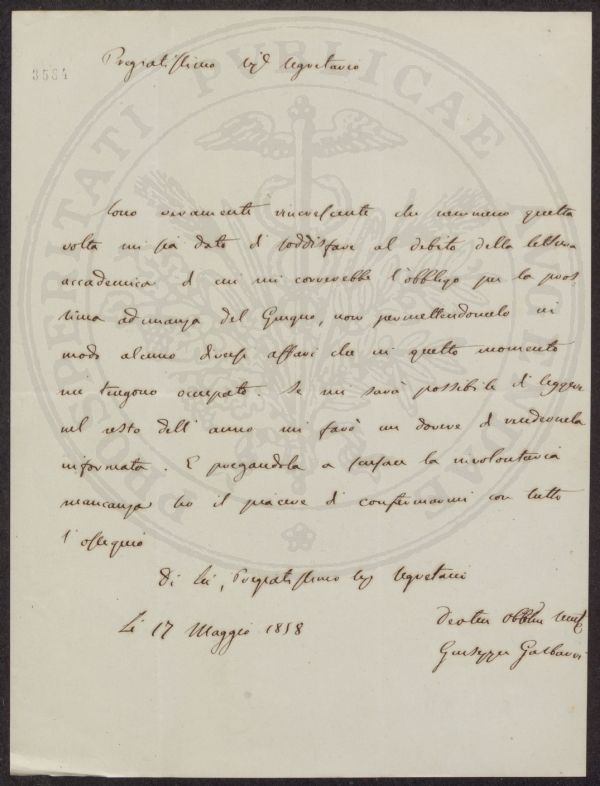 3564
Pregiatissimo Sigr Segretario
Sono vivamente rincrescente che nemmeno questa
volta mi sia dato di soddisfare al debito della lettura
accademica di cui mi correrebbe l'obbligo per la pros-
sima adunanza del Giugno, non permettendomelo in
modo alcuno diversi affari che in questo momento
mi tengono occupato. Se mi sarà possibile di leggere
nel resto dell'anno mi farò un dovere di rendernela
informata. E pregandola a scusare la involontaria
mancanza ho il piacere di confermarmi con tutto
l'ossequio
Di Lei, Pregiatissimo Sig Segretario
Li 17 Maggio 1858
Devotmo Obblmo
Giuseppe
PROSPERITATI PUBLICAE AUGENDAE